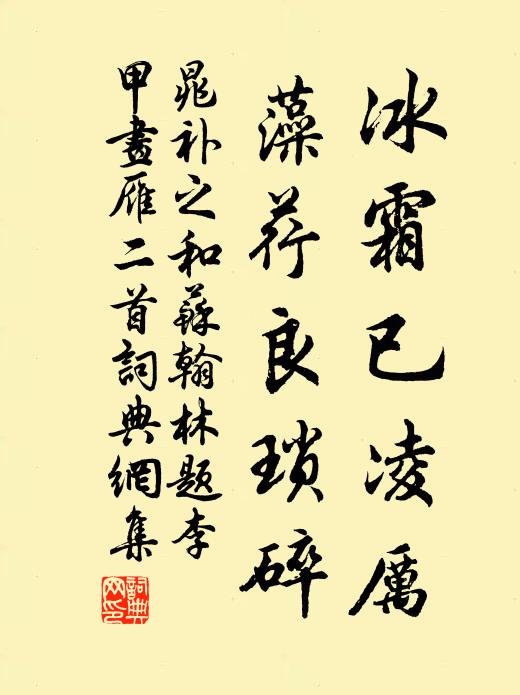 冰霜已凌厲
藻荇良瑣碎
晁补之和蘇翰林題李
甲畫雁二首詞典網集
詞典网印